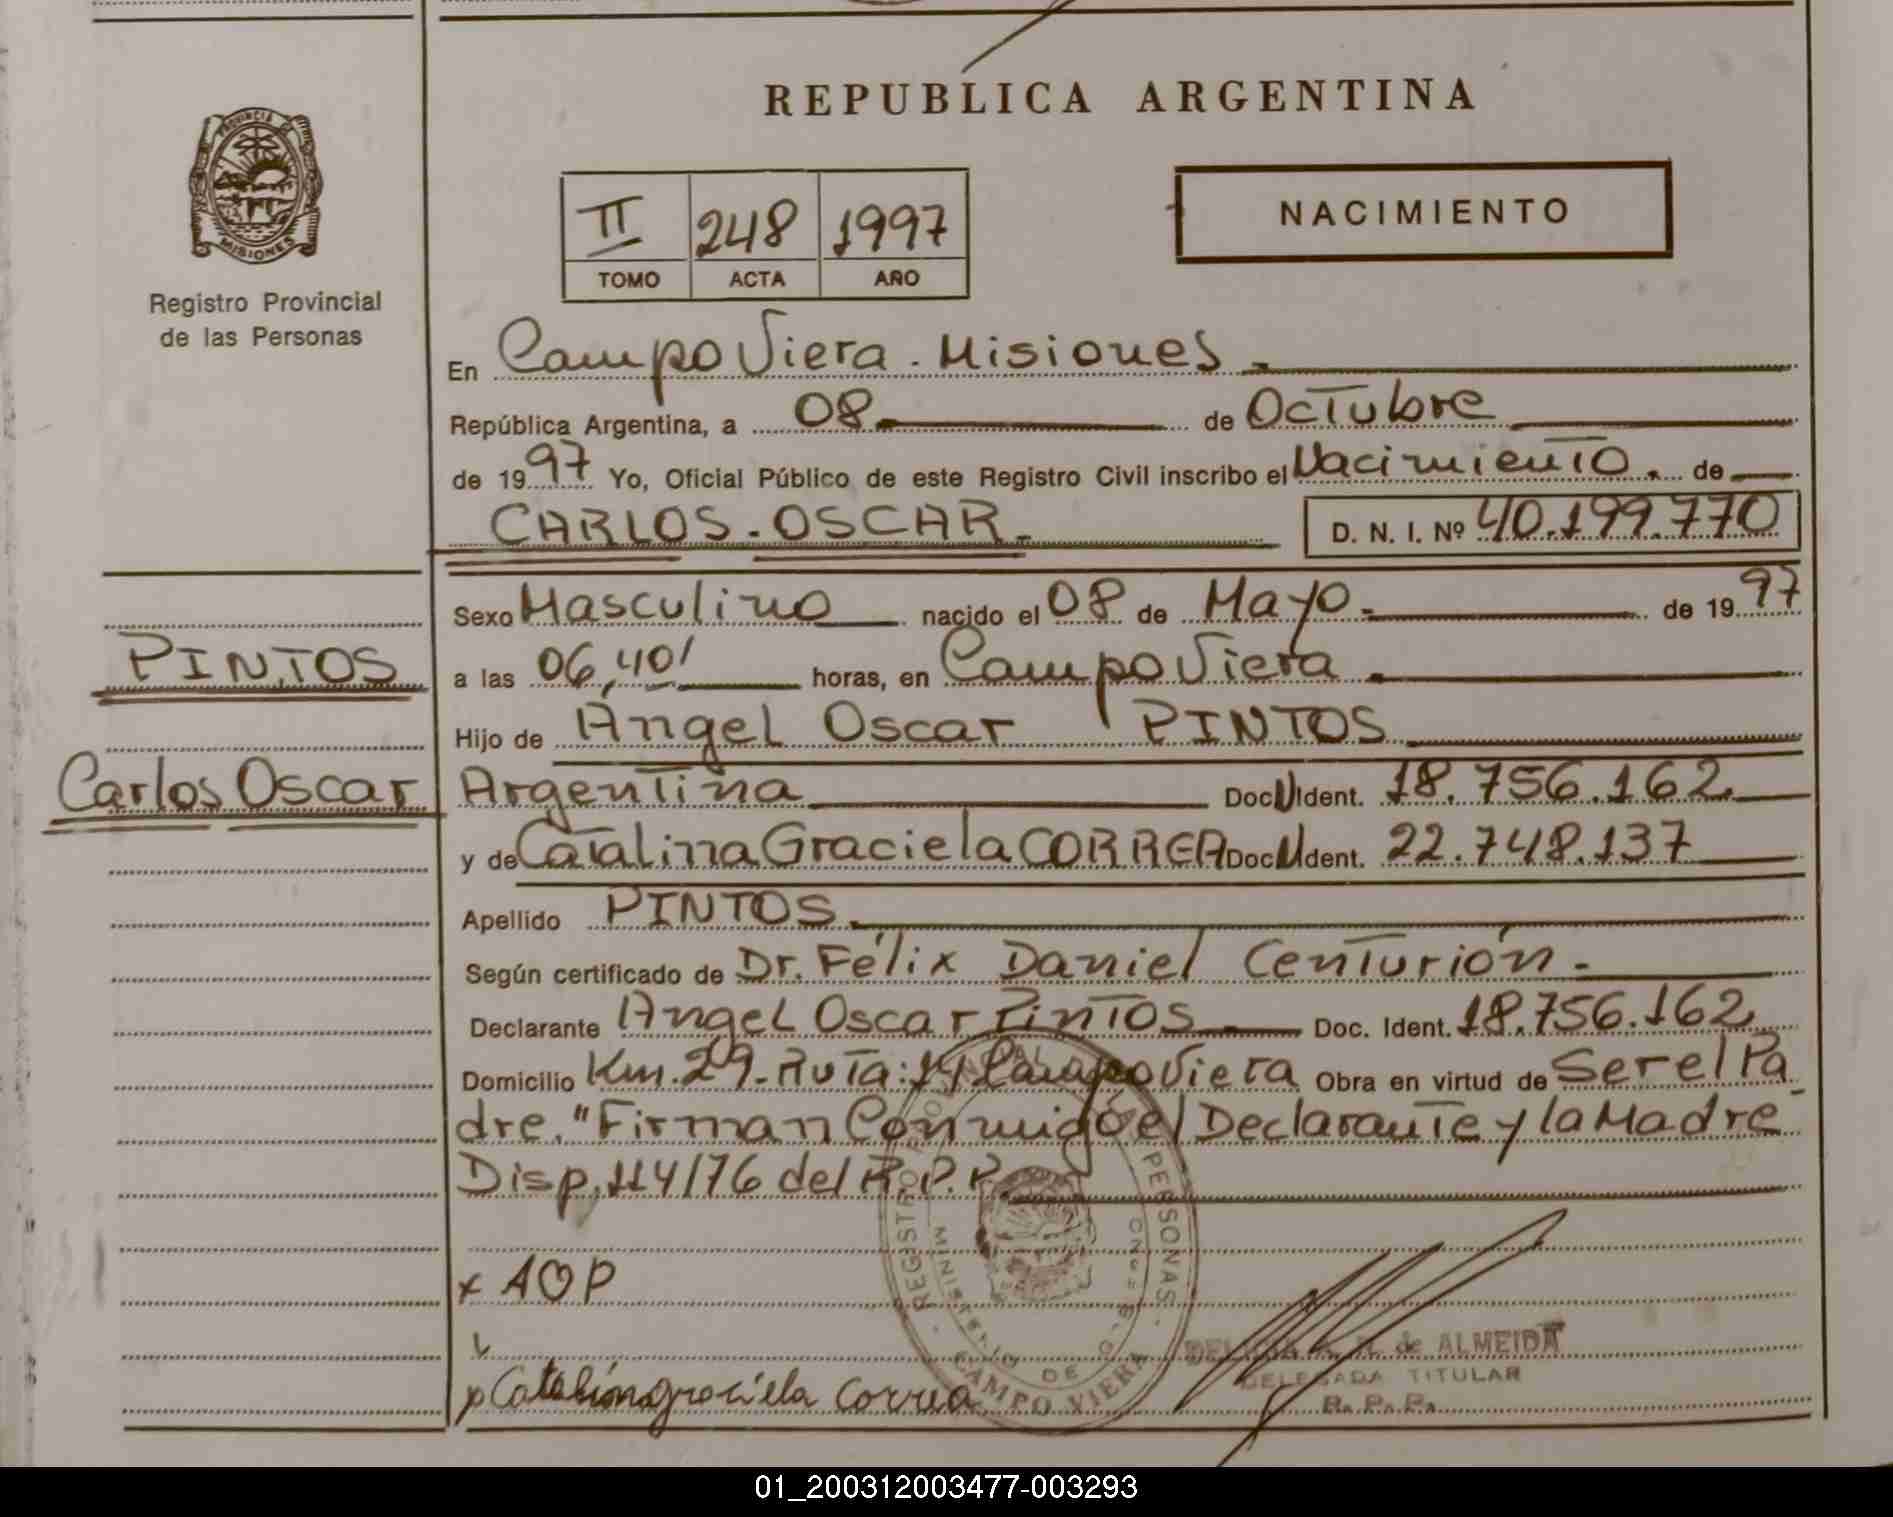 REPUBLICA ARGENTINA
PROVINCIA DE
MISIONES
Registro Provincial
de las Personas
II 248 1997
TOMO ACTA AÑO
NACIMIENTO
En Campo Viera - Misiones.-
República Argentina, a 08 de Octubre
de 1997 Yo, Oficial Público de este Registro Civil inscribo el Nacimiento. de
CARLOS - OSCAR.- D. N. I. Nº 40.199.770
Sexo Masculino nacido el 08 de Mayo.- de 1997
PINTOS
a las 06,40' horas, en Campo Viera
Hijo de Angel Oscar PINTOS
Carlos Oscar
Argentina Doc. Ident. 18.756.162
y de Catalina Graciela CORREA Doc. Ident. 22.748.137
Apellido PINTOS.
Según certificado de Dr. Félix Daniel Centurión.-
Declarante Angel Oscar Pintos.- Doc. Ident. 18.756.162
Domicilio Km. 29. Ruta: 14 Campo Viera Obra en virtud de Ser el Pa-
dre. "Firman Conmigo el Declarante y la Madre
Disp. 114/76 del R.P.P.
x AOP
Catalina graciela correa
REGISTRO PROVINCIAL DE LAS PERSONAS
MINISTERIO DE GOBIERNO
CAMPO VIERA
de ALMEIDA
DELEGADA TITULAR
R. P. P.
01_200312003477-003293